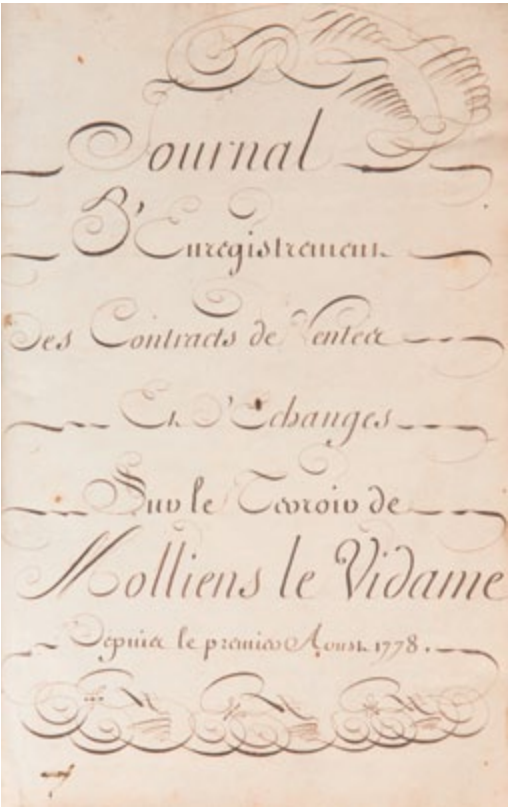 Journal
D'Enregistrement
Des Contracts de Ventes
Et D'Echanges
Sur le Terroir de
Molliens le Vidame
Depuis le premier Aoust 1778.